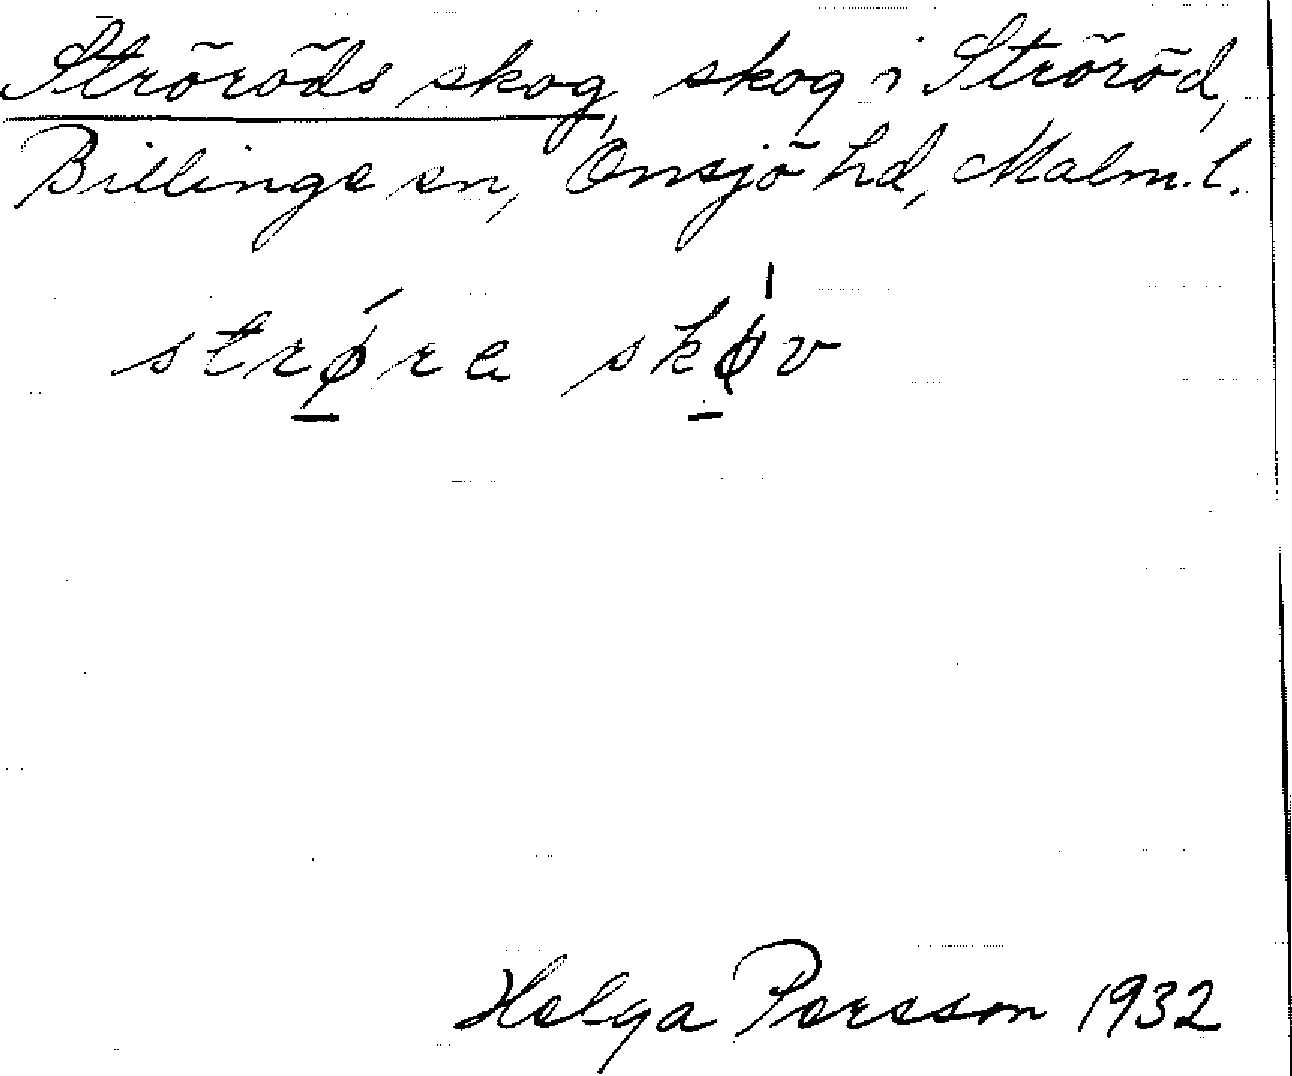 Ströröds skog, skog i Ströröd,
Billinge sn, Onsjö hd, Malm. l.
strǿ̱ra skø̱̍v
Helga Persson 1932